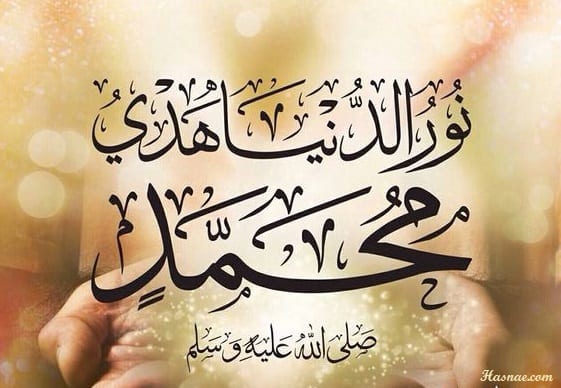 نُورُ الدُّنْيَا هَدْيُ
مُحَمَّدٍ
صَلَى اللهُ عَلَيْهِ وَسَلَم
Hasnae.com